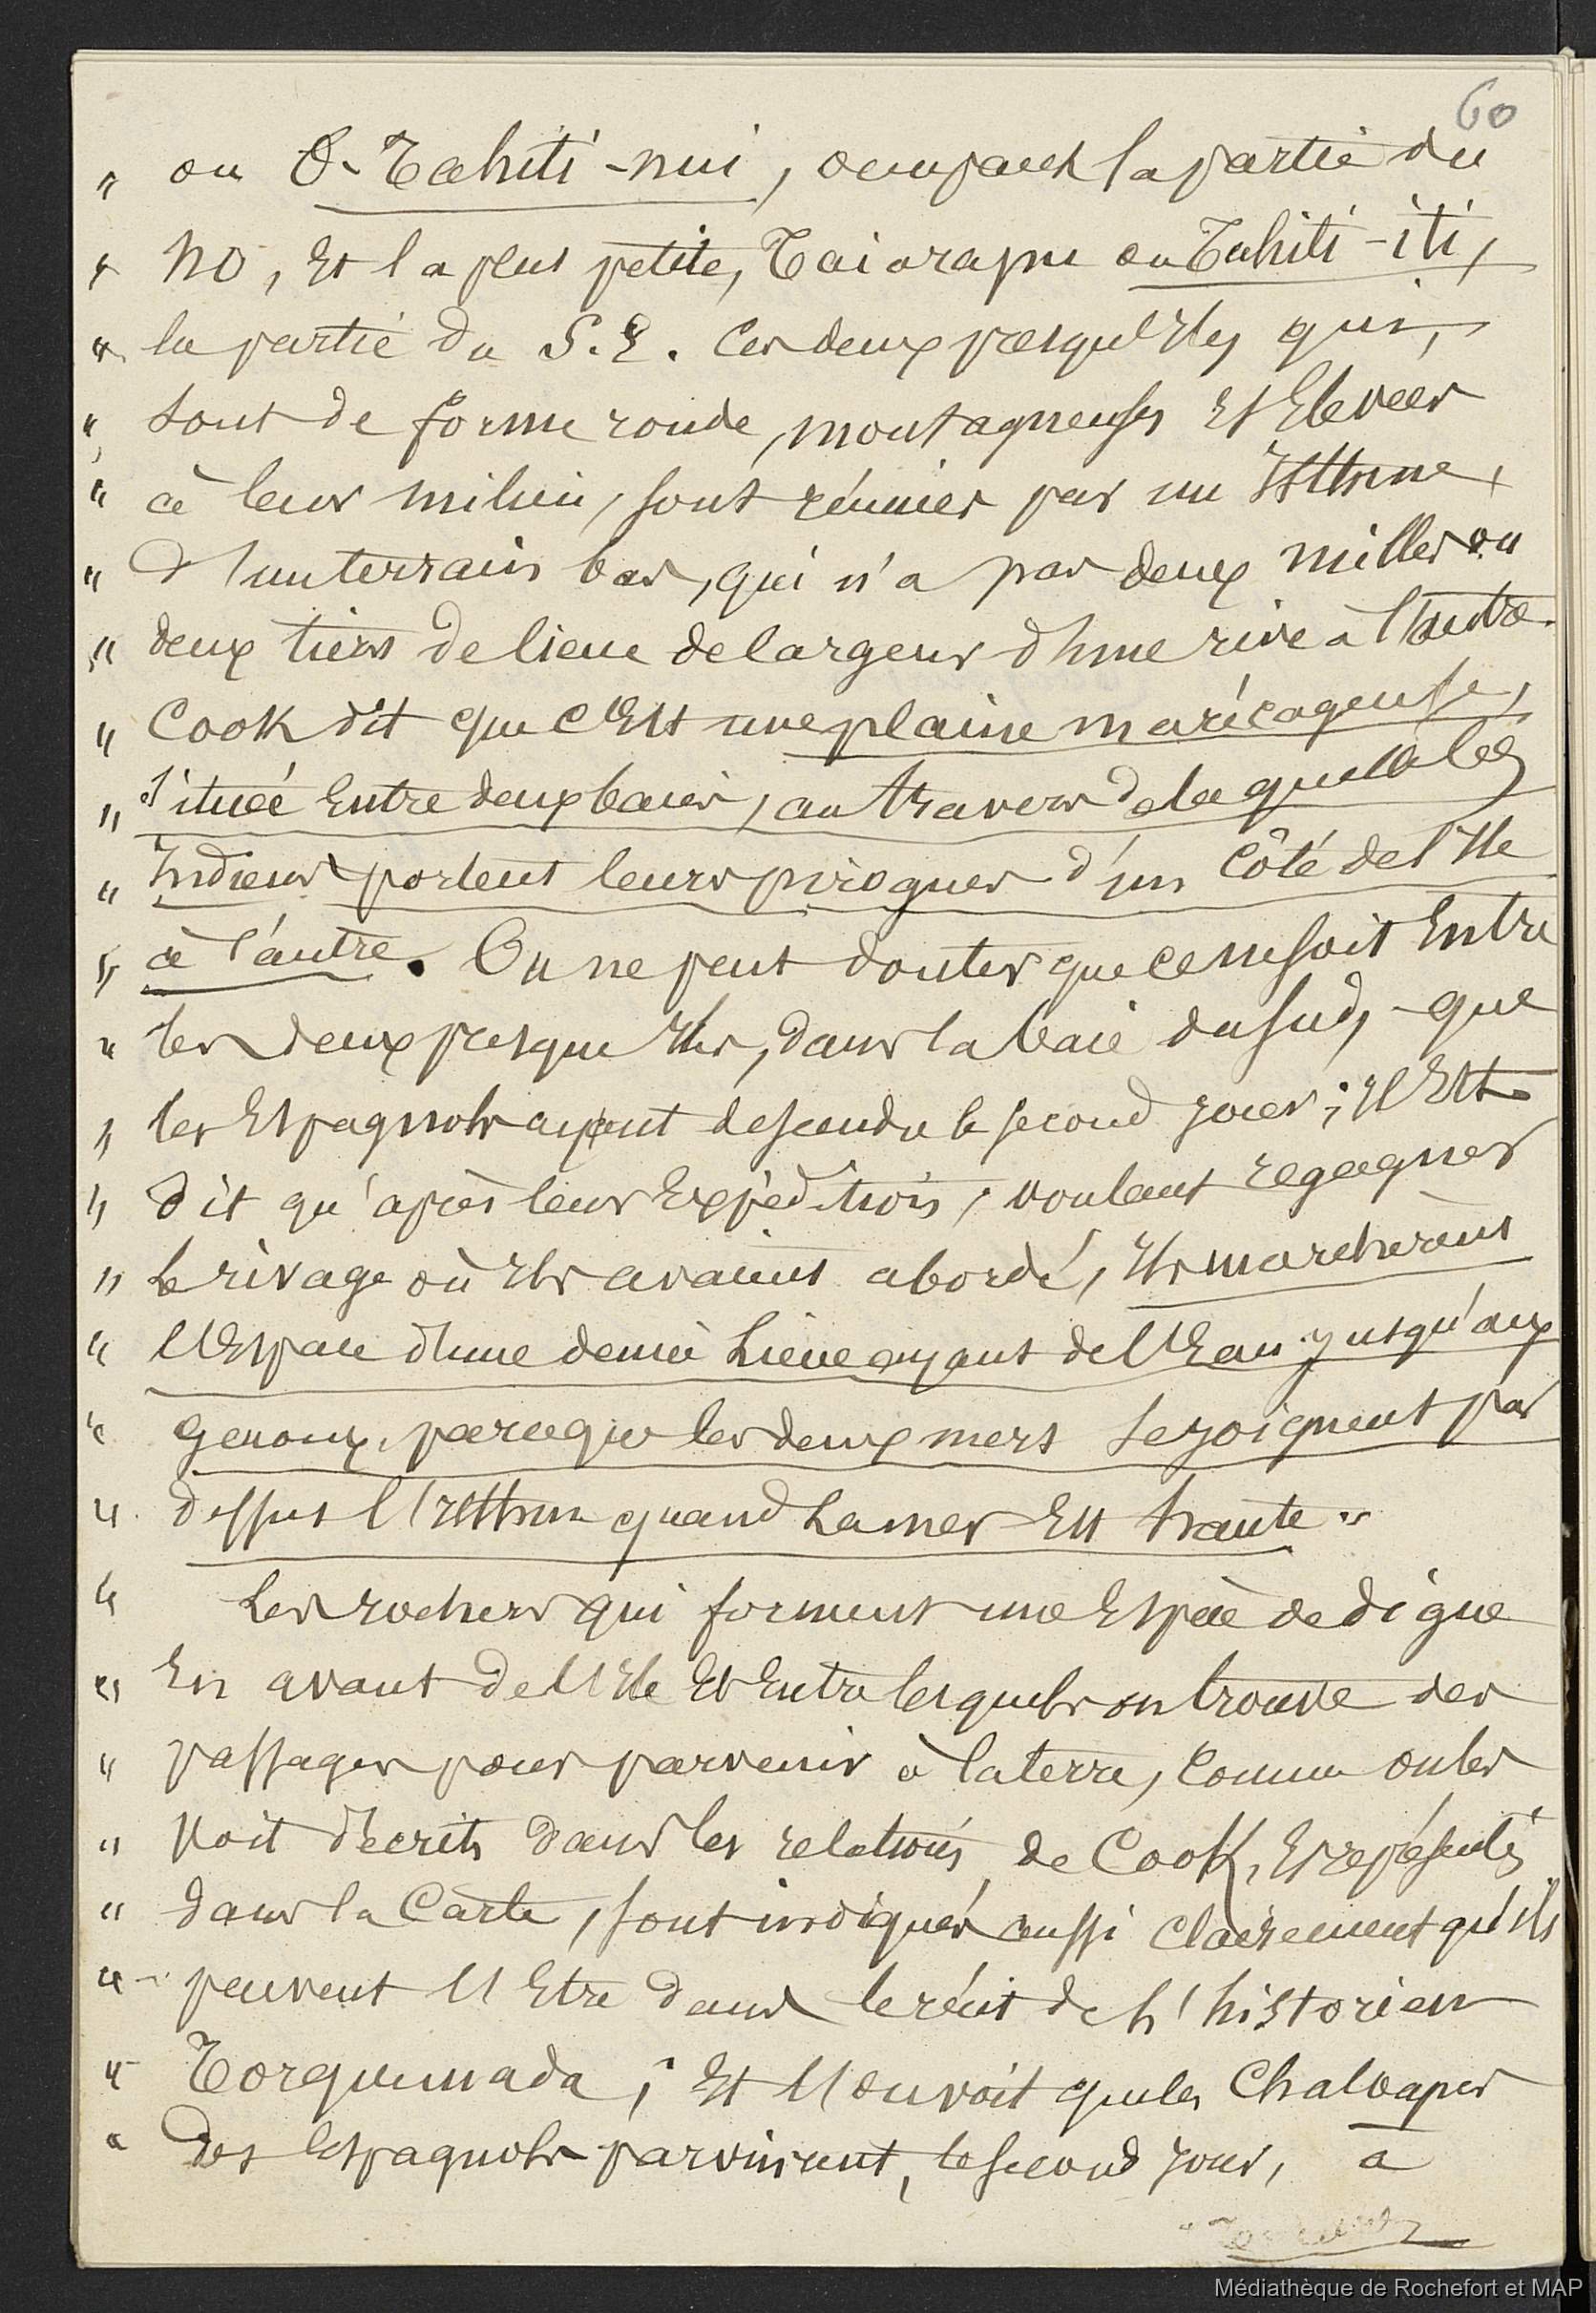 60
" ou O-Tahiti-nui, occupant la partie du
" NO, Et la plus petite, Taiarapu ou Tahiti-iti,
" la partie du S.E. Ces deux presqu'Iles qui,
" sont de forme ronde, montagneuses Et Elevées
" à leur milieu, sont réunies par un Isthme,
" d'un terrain bas, qui n'a pas deux milles ou
" deux tiers de lieue de largeur d'une rive à l'autre.
" Cook dit que c'Est une plaine marécageuse,
" située Entre deux baies, au travers de laquelle les
" Indiens portent leurs pirogues d'un Côté de l'Ile
" à l'autre. On ne peut douter que ce ne soit Entre
" les deux presque Iles, dans la baie du sud, que
" les Espagnols ayent descendu le second jour ; Il Est
" dit qu'après leur Expédition, voulant regagner
" le rivage où Ils avaient abordé, Ils marchèrent
" l'Espace d'une demie Lieue ayant de l'Eau jusqu'aux
" genoux, parceque les deux mers se joignent par
" dessus l'Isthme quand La mer Est haute "
" Les rochers qui forment une Espèce de digue
" En avant de l'Ile Et Entre lesquels on trouve des
" passages pour parvenir à la terre, Comme on les
" voit décrits dans les relations de Cook, Et représentés
" dans la Carte, sont indiqués aussi Clairement qu'ils
" peuvent l'Etre dans le récit de l'historien
" Torquemada ; Et l'on voit que les Chaloupes
" des Espagnols parvinrent, le second jour, à
Médiathèque de Rochefort et MAP